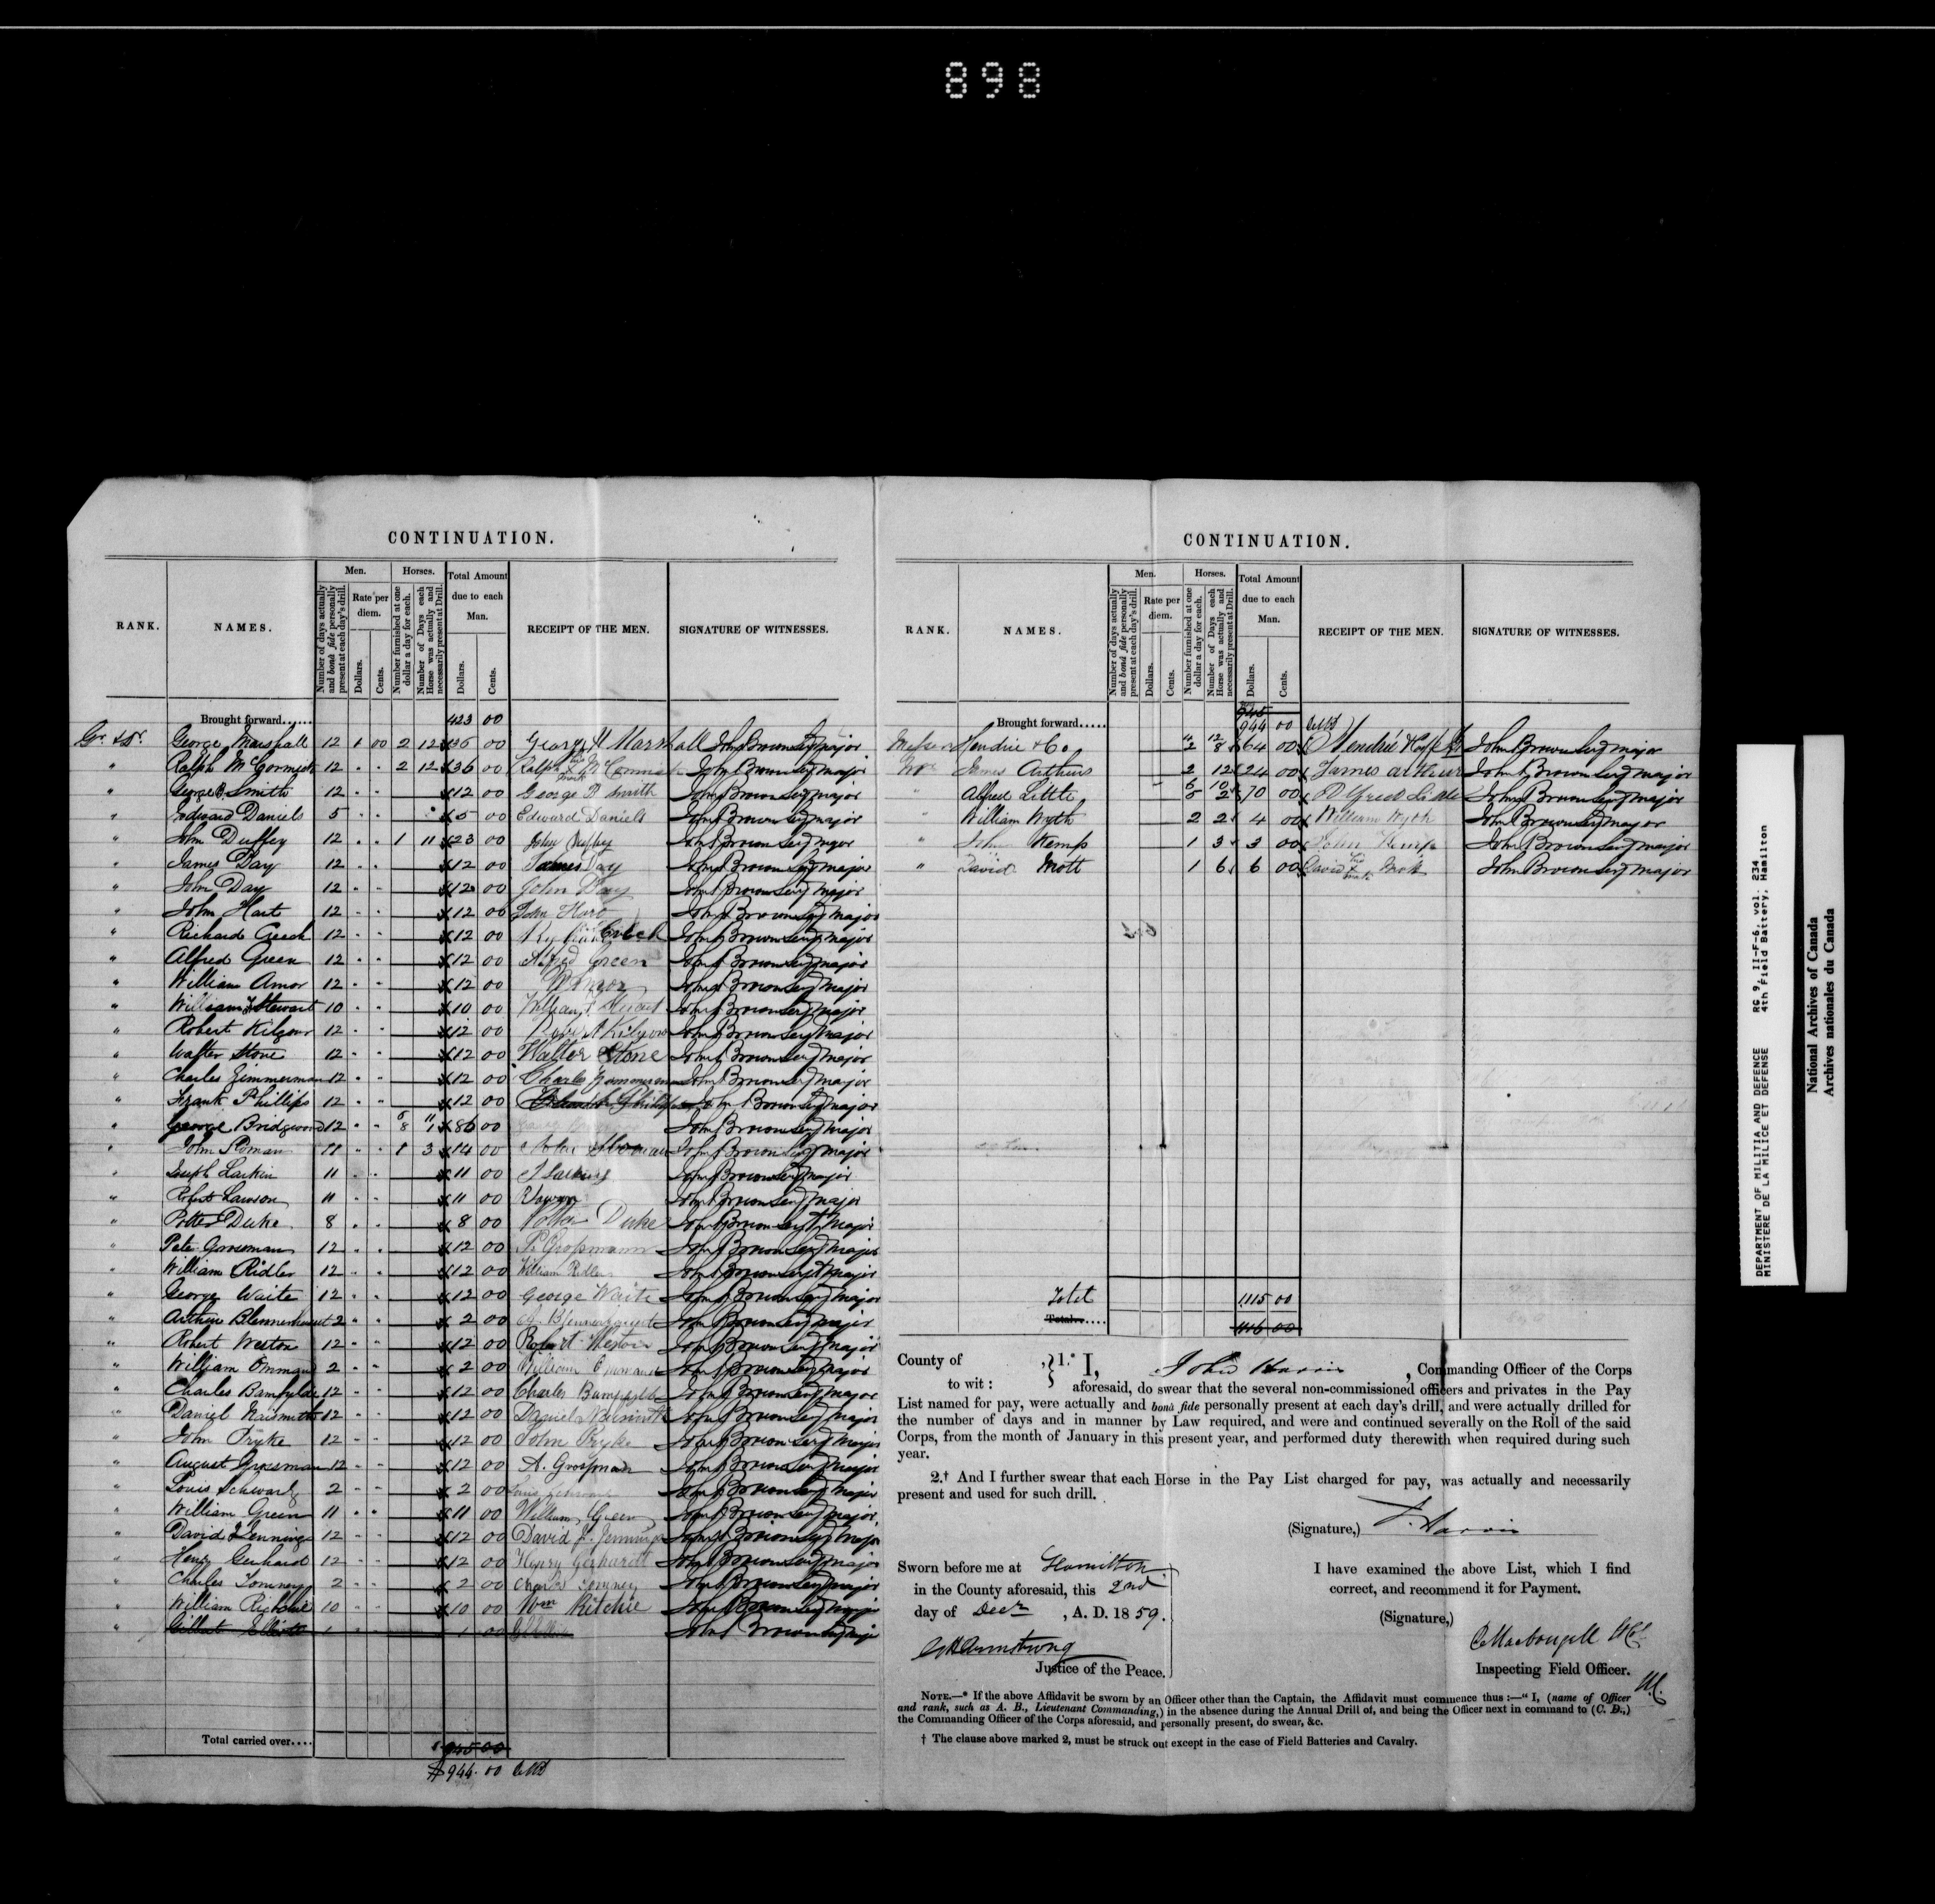 898
CONTINUATION.
RANK. NAMES. Men. Horses. Total Amount due to each Man. RECEIPT OF THE MEN. SIGNATURE OF WITNESSES.
Number of days actually and bonâ fide personally present at each day's drill. Rate per diem. Dollars. Cents. Number furnished at one dollar a day for each. Number of Days each Horse was actually and necessarily present at Drill. Dollars. Cents.
Brought forward...... 423 00
Gr. & Dr. George Marshall 12 1 00 2 12 36 00 George H Marshall John Brown Serjt major
" Ralph McCormick 12 " " 2 12 36 00 Ralph McCormick mark John Brown Serjt major
" George B. Smith 12 " " 12 00 George B Smith John Brown Serjt major
" Edward Daniels 5 " " 5 00 Edward Daniels John Brown Serjt major
" John Duffey 12 " " 1 11 23 00 John Duffey John Brown Serjt major
" James Day 12 " " 12 00 James Day John Brown Serjt major
" John Day 12 " " 12 00 John Day John Brown Serjt major
" John Hart 12 " " 12 00 John Hart John Brown Serjt major
" Richard Creech 12 " " 12 00 John Brown Serjt major
" Alfred Green 12 " " 12 00 Alfred Green John Brown Serjt major
" William Amor 12 " " 12 00 W Amor John Brown Serjt major
" William Stewart 10 " " 10 00 William Stewart John Brown Serjt major
" Robert Kilgour 12 " " 12 00 Robert Kilgour John Brown Serjt major
" Walter Stone 12 " " 12 00 Walter Stone John Brown Serjt major
" Charles Zimmerman 12 " " 12 00 Charles Zimmerman John Brown Serjt major
" Frank Phillips 12 " " 12 00 John Brown Serjt major
" George Bridgwood 12 " " 5 11 8 1 86 00 John Brown Serjt major
" John Roman 11 " " 1 3 14 00 John Brown Serjt major
" Joseph Larkin 11 " " 11 00 J Larkin John Brown Serjt major
" Robert Lawson 11 " " 11 00 John Brown Serjt major
" Potter Duke 8 " " 8 00 Potter Duke John Brown Serjt major
" Peter Grossman 12 " " 12 00 P. Grossmann John Brown Serjt major
" William Ridler 12 " " 12 00 William Ridler John Brown Serjt major
" George Waite 12 " " 12 00 George Waite John Brown Serjt major
" Arthur Blennerhasset 2 " " 2 00 John Brown Serjt major
" Robert Weston 12 " " 12 00 Robert Weston John Brown Serjt major
" William Ommand 2 " " 2 00 William Ommand John Brown Serjt major
" Charles Bampfylde 12 " " 12 00 Charles Bampfylde John Brown Serjt major
" Daniel Naismith 12 " " 12 00 Daniel Naismith John Brown Serjt major
" John Pryke 12 " " 12 00 John Pryke John Brown Serjt major
" August Grossman 12 " " 12 00 A. Grossman John Brown Serjt major
" Louis Schwartz 2 " " 2 00 John Brown Serjt major
" William Green 11 " " 11 00 William Green John Brown Serjt major
" David Jennings 12 " " 12 00 David J. Jennings John Brown Serjt major
" Henry Gerhard 12 " " 12 00 Henry Gerhardt John Brown Serjt major
" Charles Tomney 2 " " 2 00 Charles Tomney John Brown Serjt major
" William Ritchie 10 " " 10 00 Wm Ritchie John Brown Serjt major
" Gilbert Elliott 1 1 00 John Brown Serjt major
Total carried over.... 945 00
$944.00
CONTINUATION.
RANK. NAMES. Men. Horses. Total Amount due to each Man. RECEIPT OF THE MEN. SIGNATURE OF WITNESSES.
Number of days actually and bonâ fide personally present at each day's drill. Rate per diem. Dollars. Cents. Number furnished at one dollar a day for each. Number of Days each Horse was actually and necessarily present at Drill. Dollars. Cents.
Brought forward..... 945 944 00
Hendrie & Co. 4 12 2 8 64 00 Hendrie John Brown Serjt major
James Arthurs 2 12 24 00 James Arthur John Brown Serjt major
" Alfred Little 6 10 5 2 70 00 Alfred Little John Brown Serjt major
" William Wyth 2 2 4 00 William Wyth John Brown Serjt major
" John Kemp 1 3 3 00 John Kemp John Brown Serjt major
" David Mott 1 6 6 00 David Mott mark John Brown Serjt major
Total 1115 00
Total.... 1116 00
County of to wit : 1.* I, John Harris, Commanding Officer of the Corps
aforesaid, do swear that the several non-commissioned officers and privates in the Pay
List named for pay, were actually and bonâ fide personally present at each day's drill, and were actually drilled for
the number of days and in manner by Law required, and were and continued severally on the Roll of the said
Corps, from the month of January in this present year, and performed duty therewith when required during such
year.
2.† And I further swear that each Horse in the Pay List charged for pay, was actually and necessarily
present and used for such drill.
(Signature,) J. Harris
Sworn before me at Hamilton
in the County aforesaid, this 2nd
day of Decr, A. D. 1859.
Armstrong
Justice of the Peace.
I have examined the above List, which I find
correct, and recommend it for Payment.
(Signature,)
Macdougall
Inspecting Field Officer.
NOTE.—* If the above Affidavit be sworn by an Officer other than the Captain, the Affidavit must commence thus :—“ I, (name of Officer
and rank, such as A. B., Lieutenant Commanding,) in the absence during the Annual Drill of, and being the Officer next in command to (C. D.,)
the Commanding Officer of the Corps aforesaid, and personally present, do swear, &c.
† The clause above marked 2, must be struck out except in the case of Field Batteries and Cavalry.
DEPARTMENT OF MILITIA AND DEFENCE RG 9, II-F-6, vol. 234
MINISTERE DE LA MILICE ET DEFENSE 4th Field Battery, Hamilton
National Archives of Canada
Archives nationales du Canada